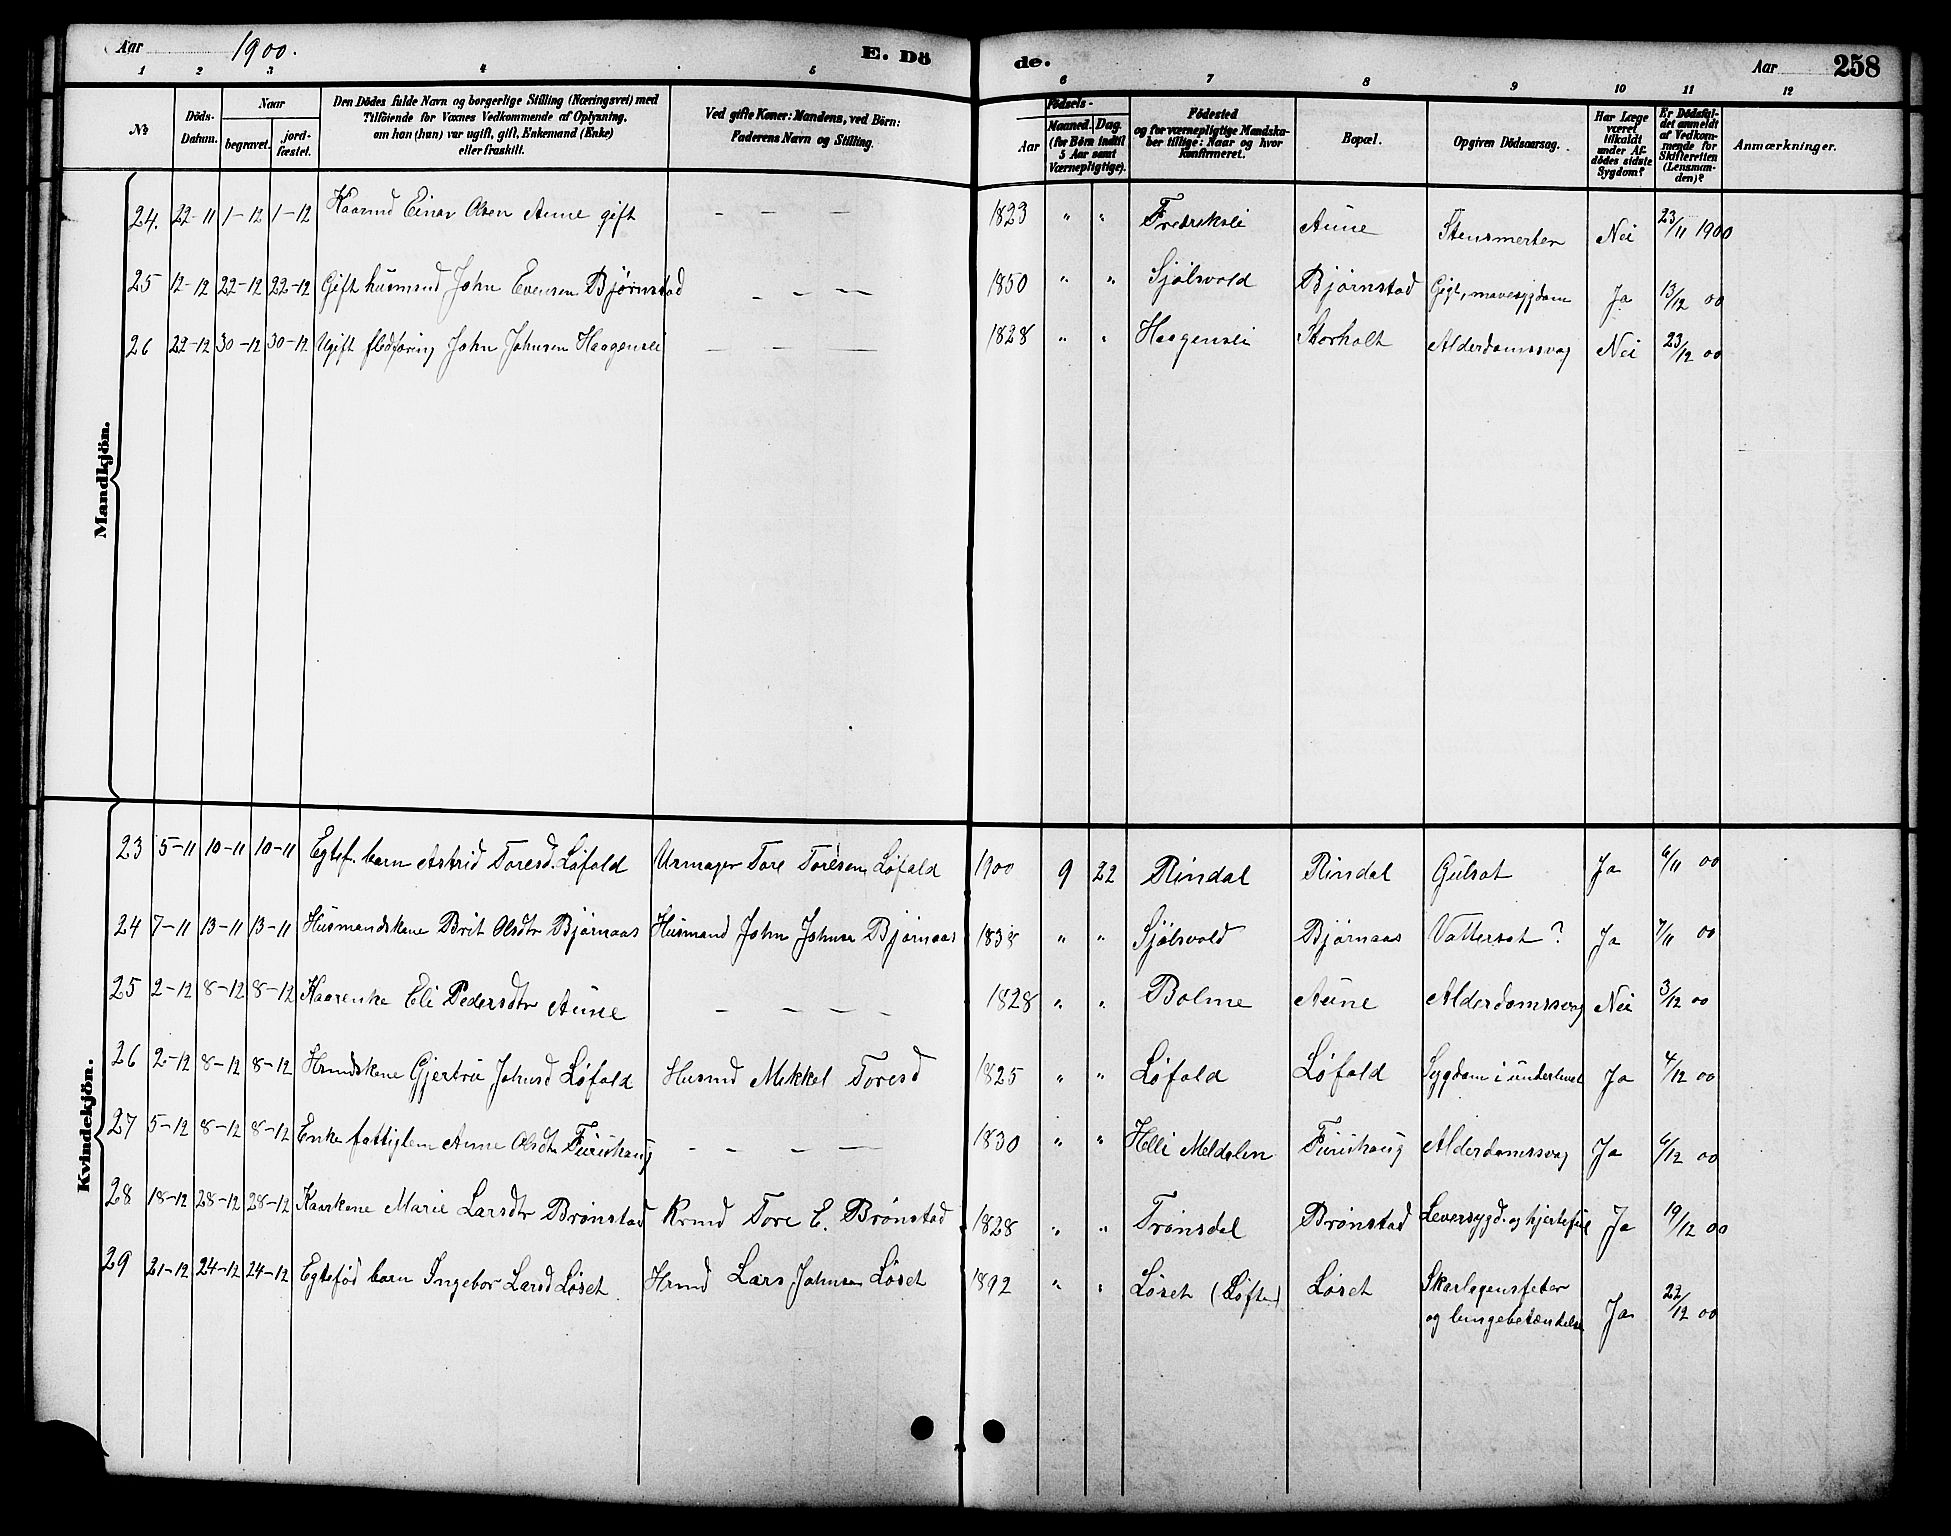 Aar 1900. E. Dö de. Aar 258
1 2 3 4 5 6 7 8 9 10 11 12
No Döds-Datum. Naar begravet. jord-fæstet. Den Dödes fulde Navn og borgerlige Stilling (Næringsvei) med Tilföiende for Voxnes Vedkommende af Oplysning, om han (hun) var ugift, gift, Enkemand (Enke) eller fraskilt. Ved gifte Koner: Mandens, ved Börn: Faderens Navn og Stilling. Födsels- Aar Maaned. Dag. (for Börn indtil 5 Aar samt Værnepligtige). Födested og for værnepligtige Mandskaber tillige: Naar og hvor konfirmeret. Bopæl. Opgiven Dödsaarsag. Har Læge været tilkaldt under Afdödes sidste Sygdom? Er Dödsfaldet anmeldt af Vedkommende for Skifteretten (Lensmanden)? Anmærkninger.
Mandkjön.
24. 22-11 1-12 1-12 Kaarmd Einar Olsen Aune gift — — — 1823 " " Fredriksli Aune Stensmerter Nei 23/11 1900
25 12-12 22-12 22-12 Gift husmand John Evensen Bjørnstad — — — 1850 " " Sjølsvold Bjørnstad Gigt, mavesygdom Ja 13/12 00
26 22-12 30-12 30-12 Ugift fledføring John Johnsen Haagensli — — — 1828 " " Haagensli Storholt Alderdomssvag Nei 23/12 00
Kvindekjön.
23 5-11 10-11 10-11 Egtef. barn Astrid Toresd. Løfald Urmager Tore Toresen Løfald 1900 9 22 Rindal Rindal Gulsot Ja 6/11 00
24 7-11 13-11 13-11 Husmandskone Brit Olsdtr Bjørnaas Husmand John Johnsen Bjørnaas 1838 " " Sjølsvold Bjørnaas Vattersot? Ja 7/11 00
25 2-12 8-12 8-12 Kaarenke Eli Pedersdtr Aune — — — — 1828 " " Bolme Aune Alderdomssvag Nei 3/12 00
26 2-12 8-12 8-12 Hmndskone Gjertru Johnsd Løfald Husmd Mekkel Toresd 1825 " " Løfald Løfald Sygdom i underlivet Ja 4/12 00
27 5-12 8-12 8-12 Enke fattiglem Anne Olsdt Furuhaug — — — — 1830 " " Helli Meldalen Furuhaug Alderdomssvag Ja 6/12 00
28 18-12 28-12 28-12 Kaarkone Marie Larsdtr Brønstad Krmd Tore E. Brønstad 1828 " " Trønsdal Brønstad Leversygd. og hjertefeil Ja 19/12 00
29 21-12 24-12 24-12 Egtefød barn Ingebor Larsd Løset Hmd Lars Johnsen Løset 1892 " " Løset (Løften) Løset Skarlagensfeber
og lungebetændelse Ja 22/12 00